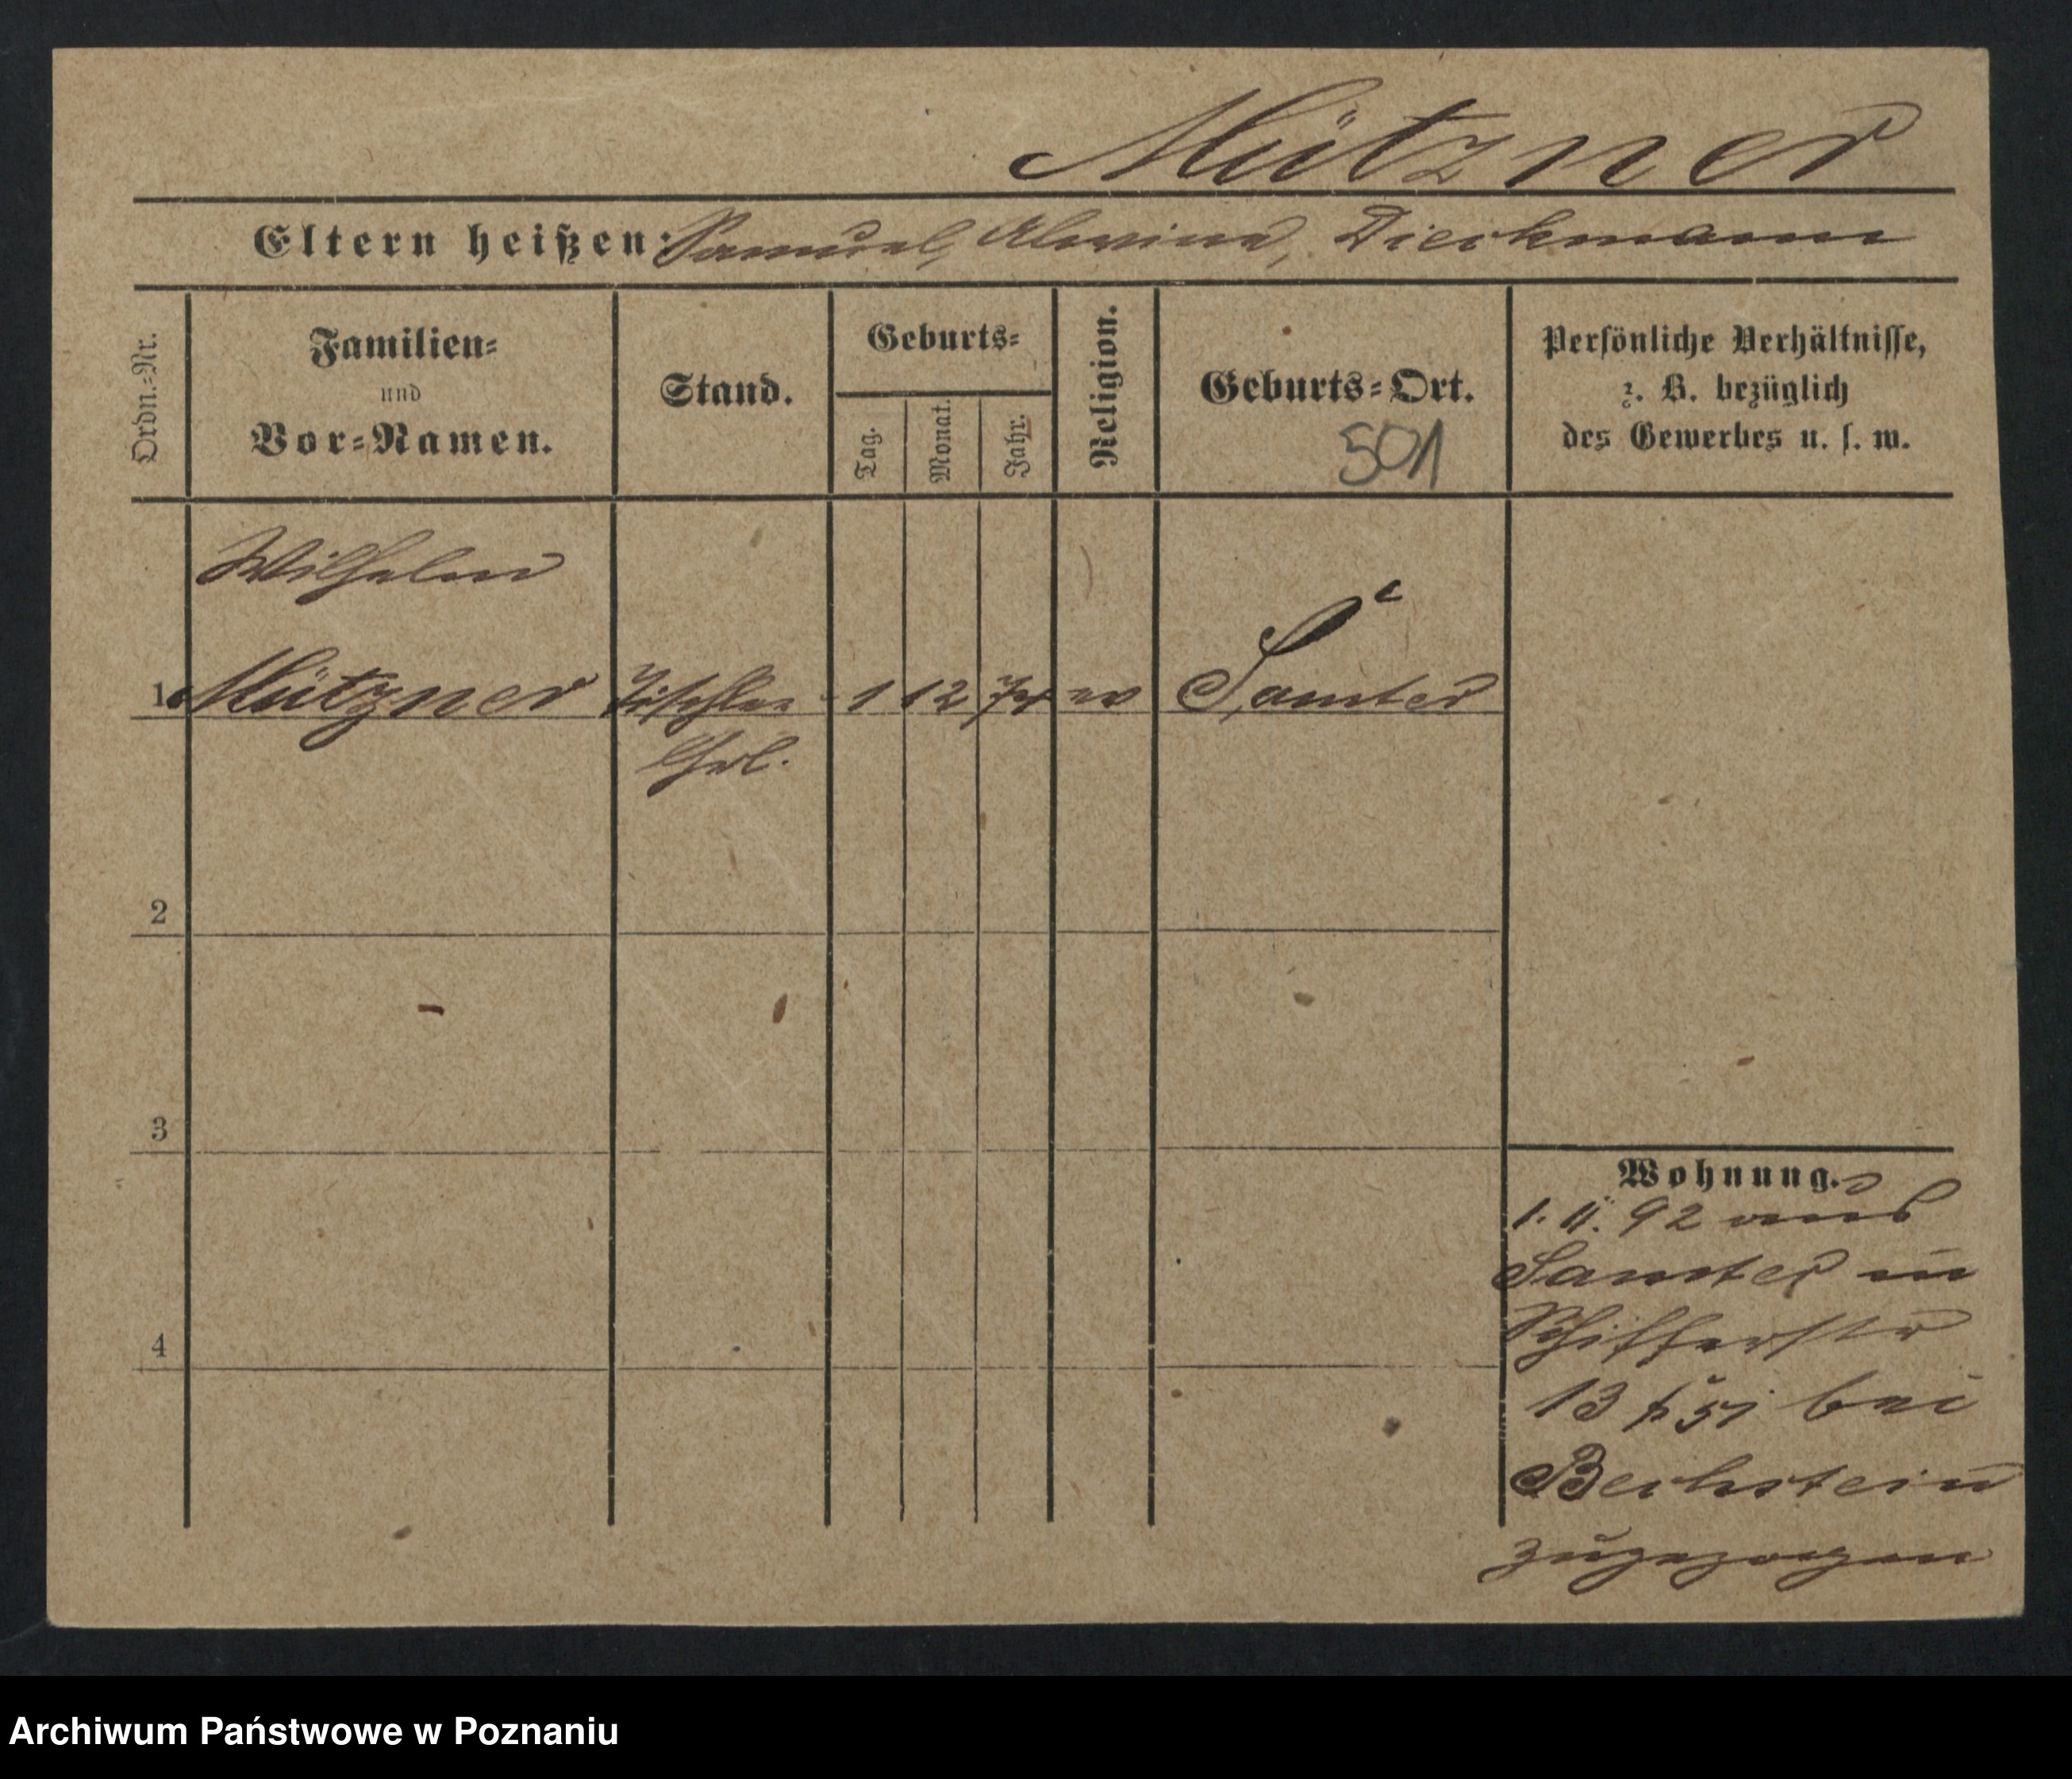 Mützner
Eltern heißen: Samuel, Alwina, Dieckmann
Ordn.-Nr.
Familien-
und
Vor-Namen.
Stand.
Geburts-
Tag.
Monat.
Jahr.
Religion.
Geburts-Ort.
501
Persönliche Verhältnisse,
z. B. bezüglich
des Gewerbes u. s. w.
Wilhelm
1 Mützner Tischler 1 12 74 ev Samter
2
3
4
Wohnung.
1. 11. 92 aus
Samter in
Schifferstr
13 bei
Bechstein
zugezogen
Archiwum Państwowe w Poznaniu